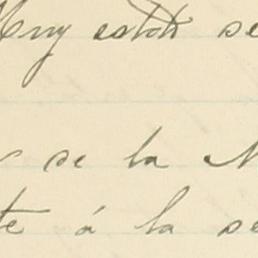 Muy estoh se
de la
te á la se